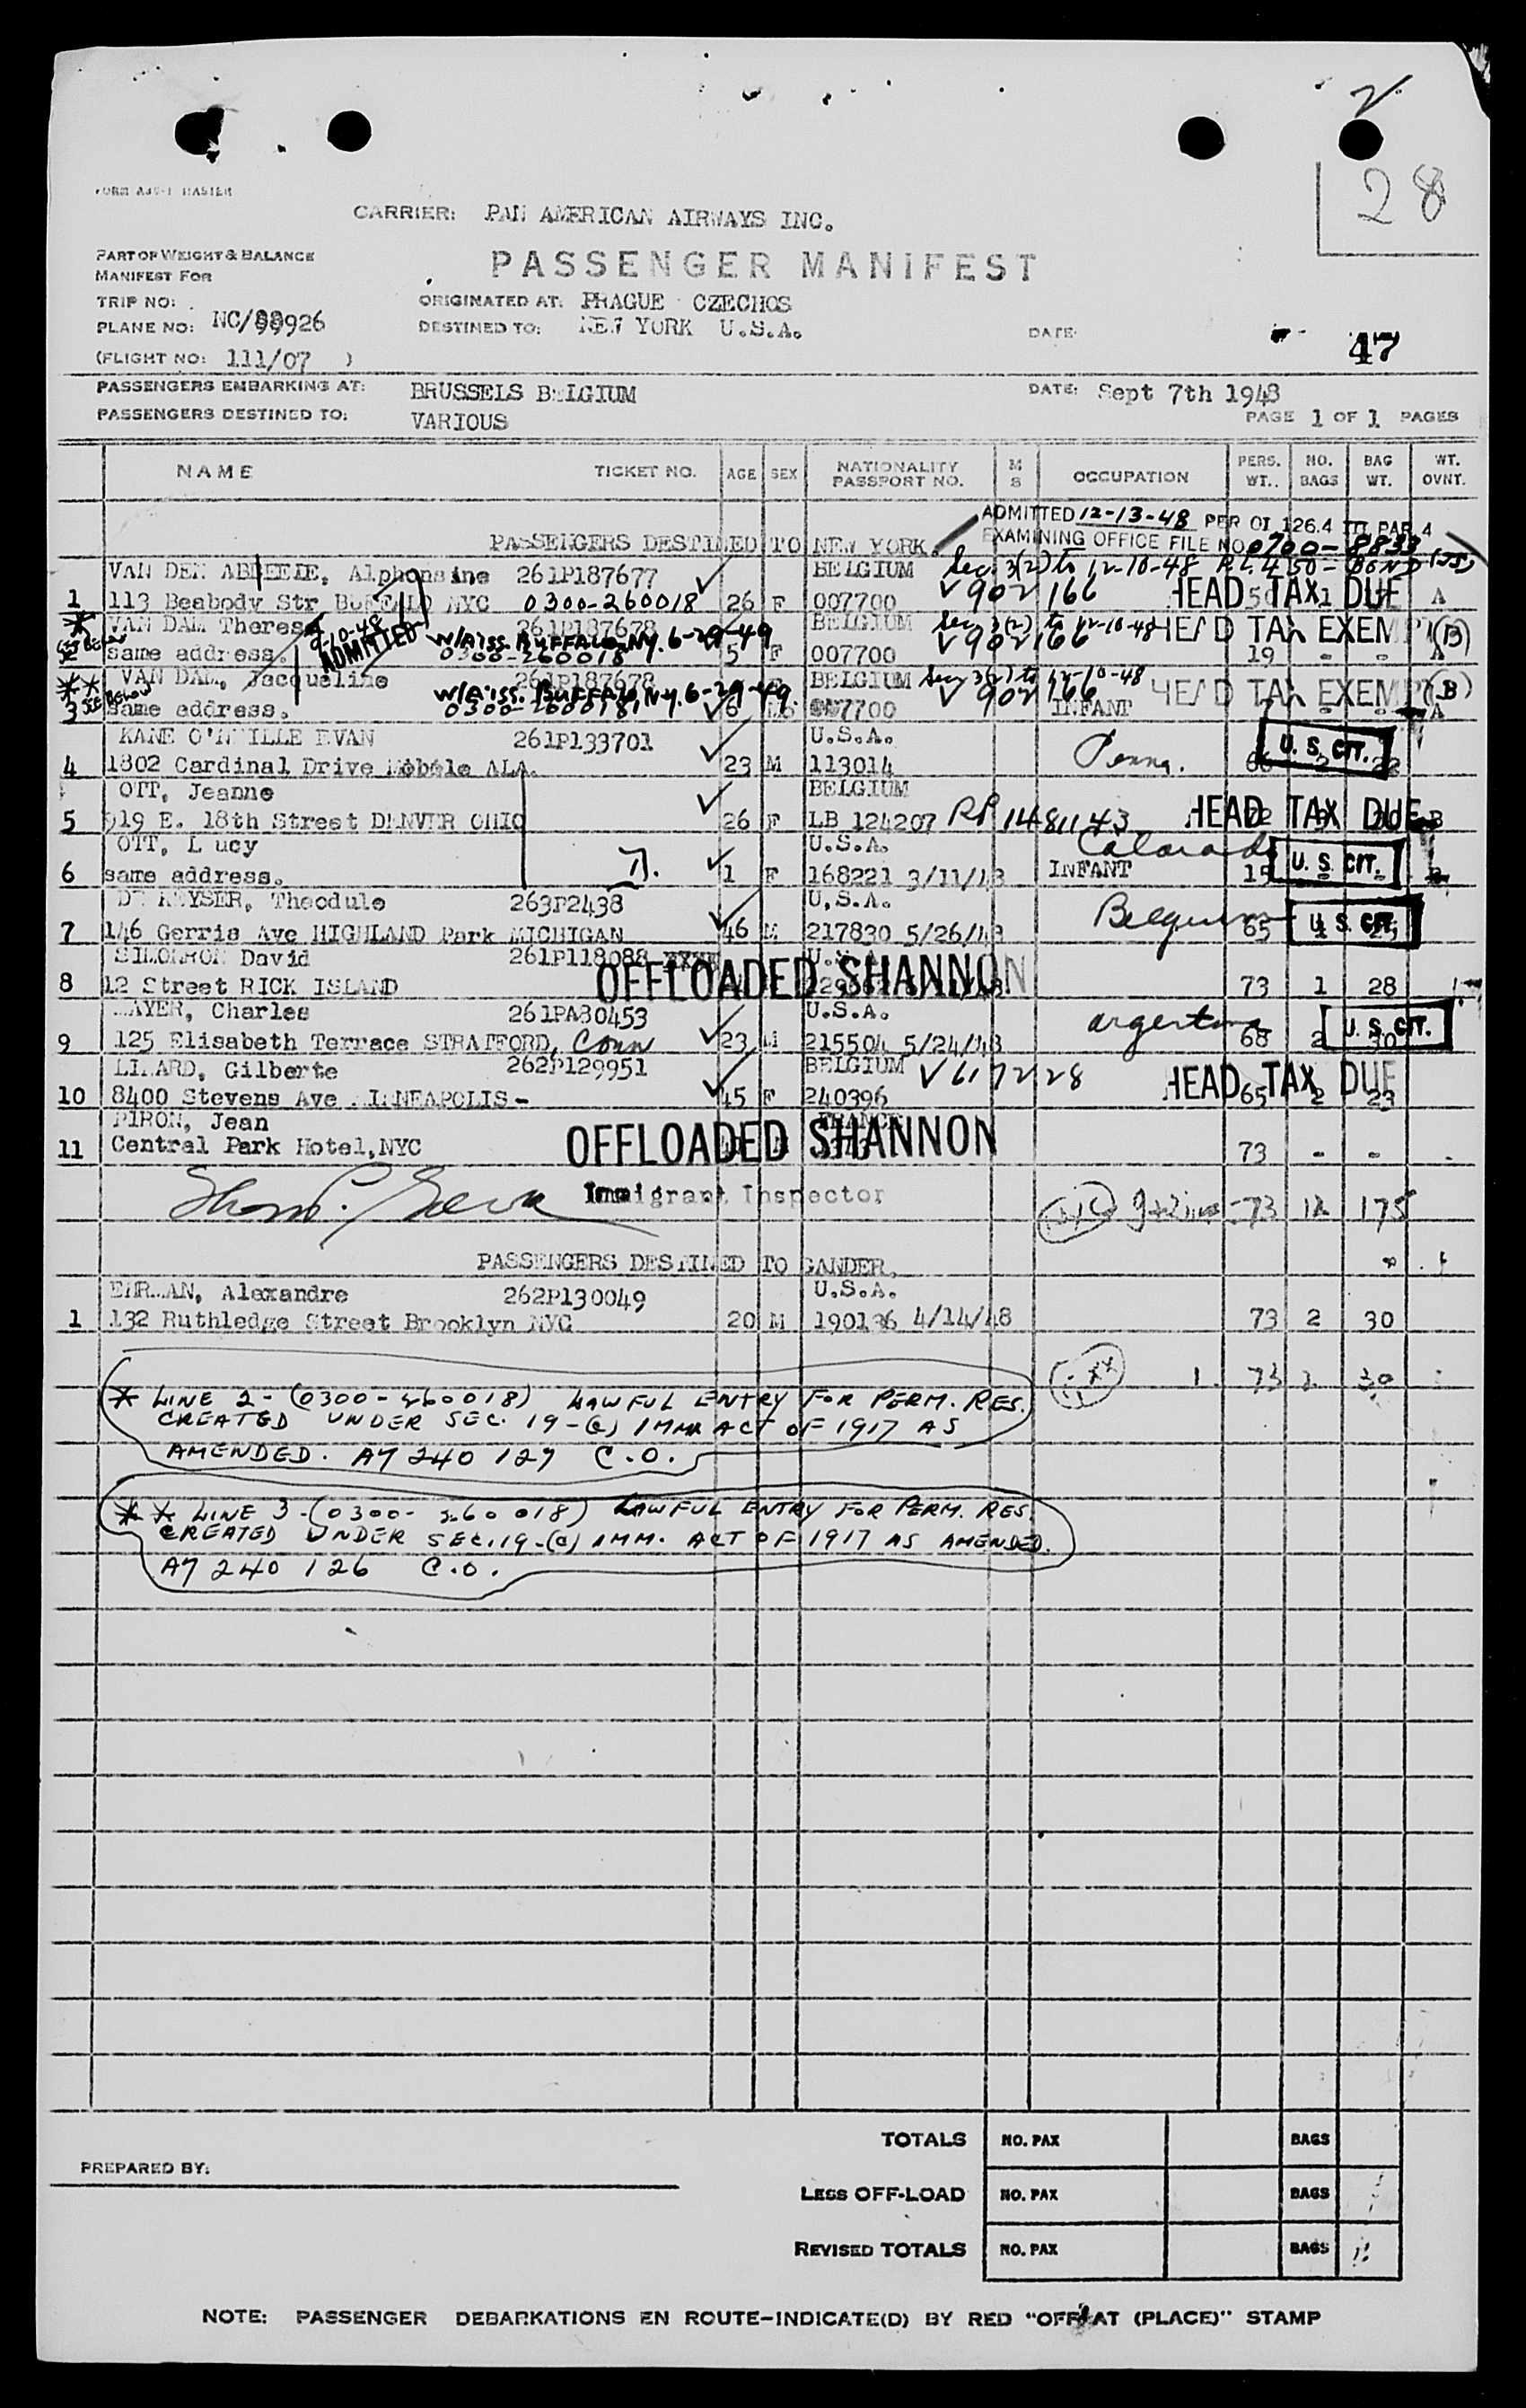 2
28
CARRIER: PAN AMERICAN AIRWAYS INC.
PART OF WEIGHT & BALANCE
MANIFEST FOR
PASSENGER MANIFEST
TRIP NO:
ORIGINATED AT: PRAGUE CZECHOS
PLANE NO: NC/88926
DESTINED TO: NEW YORK U.S.A.
DATE
47
(FLIGHT NO: 111/07 )
PASSENGERS EMBARKING AT: BRUSSELS BELGIUM
DATE: Sept 7th 1948
PASSENGERS DESTINED TO: VARIOUS
PAGE 1 OF 1 PAGES
NAME TICKET NO. AGE SEX NATIONALITY PASSPORT NO. M S OCCUPATION PERS. WT.. NO. BAGS BAG WT. WT. OVNT.
ADMITTED 12-13-48 PER OI 126.4 PAR 4
PASSENGERS DESTINED TO NEW YORK.
EXAMINING OFFICE FILE NO 0700-8833
VAN DEN Alphonsine 261P187677 BELGIUM Sec. 3(2) to 12-10-48
1 113 Beabody Str BUFFALO NYC 0300-260018 26 F 007700 V 902166 HEAD TAX DUE A
* VAN DAM Theresa 261P187678 BELGIUM Sec 3(2) to 12-10-48 HEAD TAX EXEMPT (B)
ADMITTED W/A iss. BUFFALO, N.Y. 6-29-49
same address. 0300-260018 5 F 007700 V 902166 19 - - A
** VAN DAM, Jacqueline 261P187678 BELGIUM Sec 3(2) to 12-10-48 HEAD TAX EXEMPT (B)
W/A iss. BUFFALO, N.Y. 6-29-49.
3 see below same address. 007700 V 902166 INFANT A
KANE O'NEILLE EVAN 261P133701 U.S.A.
4 1802 Cardinal Drive Mobele ALA. 23 M 113014 Penna. U. S. CIT.
OTT, Jeanne BELGIUM
5 919 E. 18th Street DENVER OHIO 26 F LB 124207 RP 1481143 HEAD TAX DUE B
OTT, Lucy U.S.A. Colorado
6 same address. 1 F 168221 3/11/48 INFANT 15 U. S. CIT.
DE KEYSER, Theodule 263P2438 U.S.A.
7 146 Gerris Ave HIGHLAND Park MICHIGAN 46 M 217830 5/26/48 Belgium 65 U. S. CIT.
David 261P118088
OFFLOADED SHANNON
8 12 Street RICK ISLAND 73 1 28
MAYER, Charles 261PA80453 U.S.A.
9 125 Elisabeth Terrace STRATFORD, Conn 23 M 215504 5/24/48 Argentina 68 2 30 U. S. CIT.
Gilberte 262P129951 BELGIUM V 617228
10 8400 Stevens Ave MINNEAPOLIS- 45 F 240396 HEAD TAX DUE 65 2 23
PIRON, Jean FRANCE
OFFLOADED SHANNON
11 Central Park Hotel,NYC 73 - -
Immigrant Inspector
73 12 175
PASSENGERS DESTINED TO GANDER.
Alexandre 262P130049 U.S.A.
1 132 Ruthledge Street Brooklyn NYC 20 M 190136 4/14/48 73 2 30
1 73 2 30
* LINE 2 - (0300-260018) LAWFUL ENTRY FOR PERM. RES.
CREATED UNDER SEC. 19-(c) IMM ACT OF 1917 AS
AMENDED. A7 240 127 C.O.
** LINE 3 - (0300-260018) LAWFUL ENTRY FOR PERM. RES.
CREATED UNDER SEC. 19-(c) IMM. ACT OF 1917 AS AMENDED.
A7 240 126 C.O.
TOTALS NO. PAX BAGS
PREPARED BY:
LESS OFF-LOAD NO. PAX BAGS
REVISED TOTALS NO. PAX BAGS
NOTE: PASSENGER DEBARKATIONS EN ROUTE-INDICATE(D) BY RED "OFF AT (PLACE)" STAMP